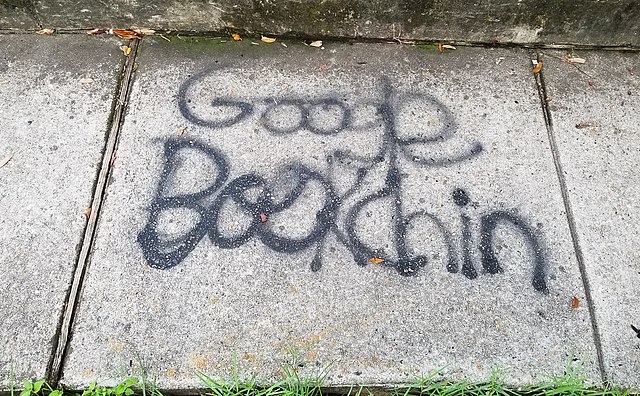 Google
Bookchin